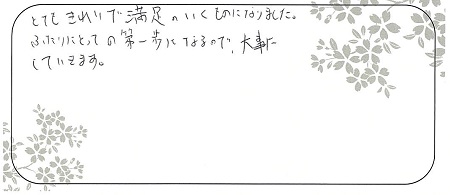 とてもきれいで満足のいくものになりました。
ふたりにとっての第一歩になるので、大事に
していきます。